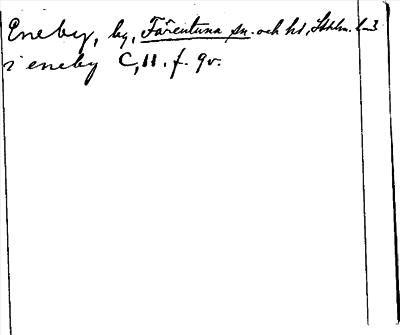 Eneby, by, Färentuna sn. och hd, Sthlm. l-n
i eneby C, 11. f. 9v.